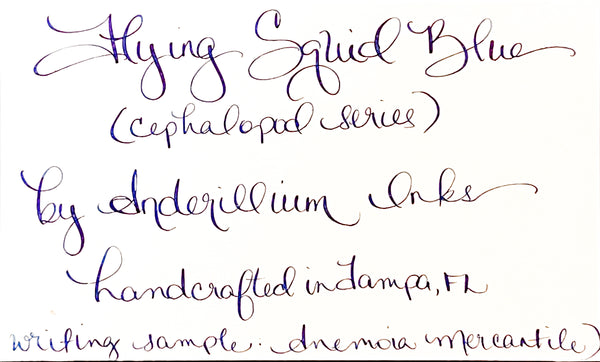 Flying Squid Blue
(cephalopod series)
by Anderillium Inks
handcrafted in Tampa, FL
writing sample: Anemoia Mercantile)